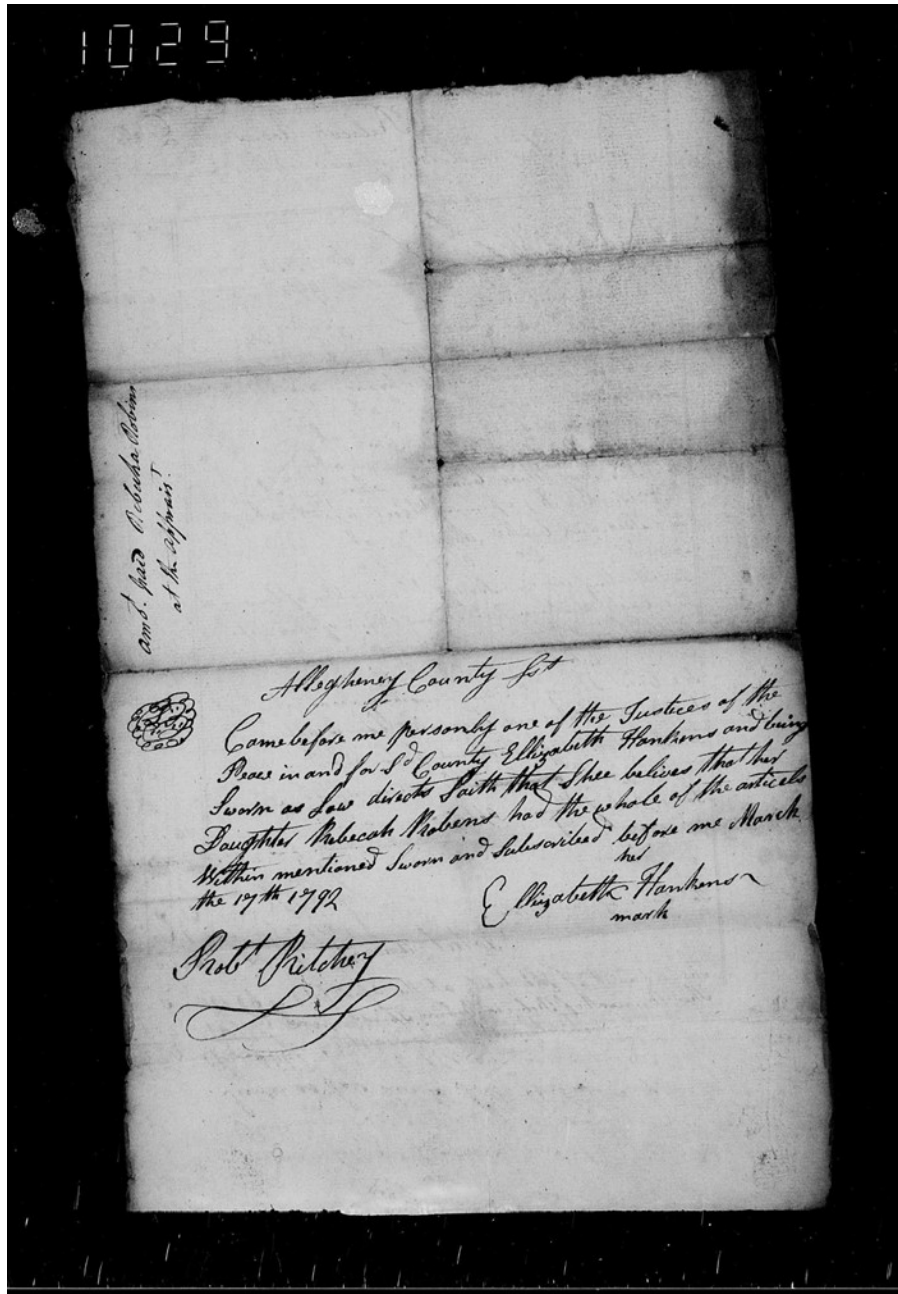 1029
Amt. paid Rebecka Robins
at the appraist.
Allegheney County Sst
Came before me personly one of the Justices of the
Peace in and for Sd County Ellizabeth Hankens and being
Sworn as Law directs Saith that Shee belives that her
Daughter Rebecah Robens had the whole of the articels
Within mentioned Sworn and Subscribed before me March
the 17th 1792
her
Ellizabeth Hankens
mark
Robt Ritchey